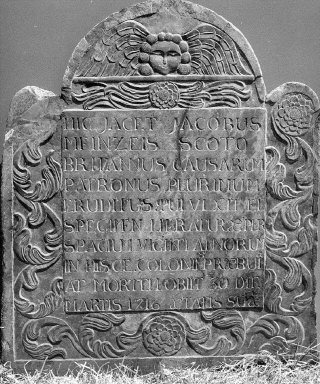 HIC JACET JACOBUS
MEINZEIS SCOTO
BRITANUS CAUSARUM
PATRONUS PLURIMUM
ERUDITUS PULVEXITEL
SPECIEN LITERATURÆ PER
SPACIUM VIGINTI ANNORUM
IN HISCE COLONIIS PRÆBUIT
MORTEM OBIIT 30 DIE
MARTIS 1716 ÆTATIS SUÆ